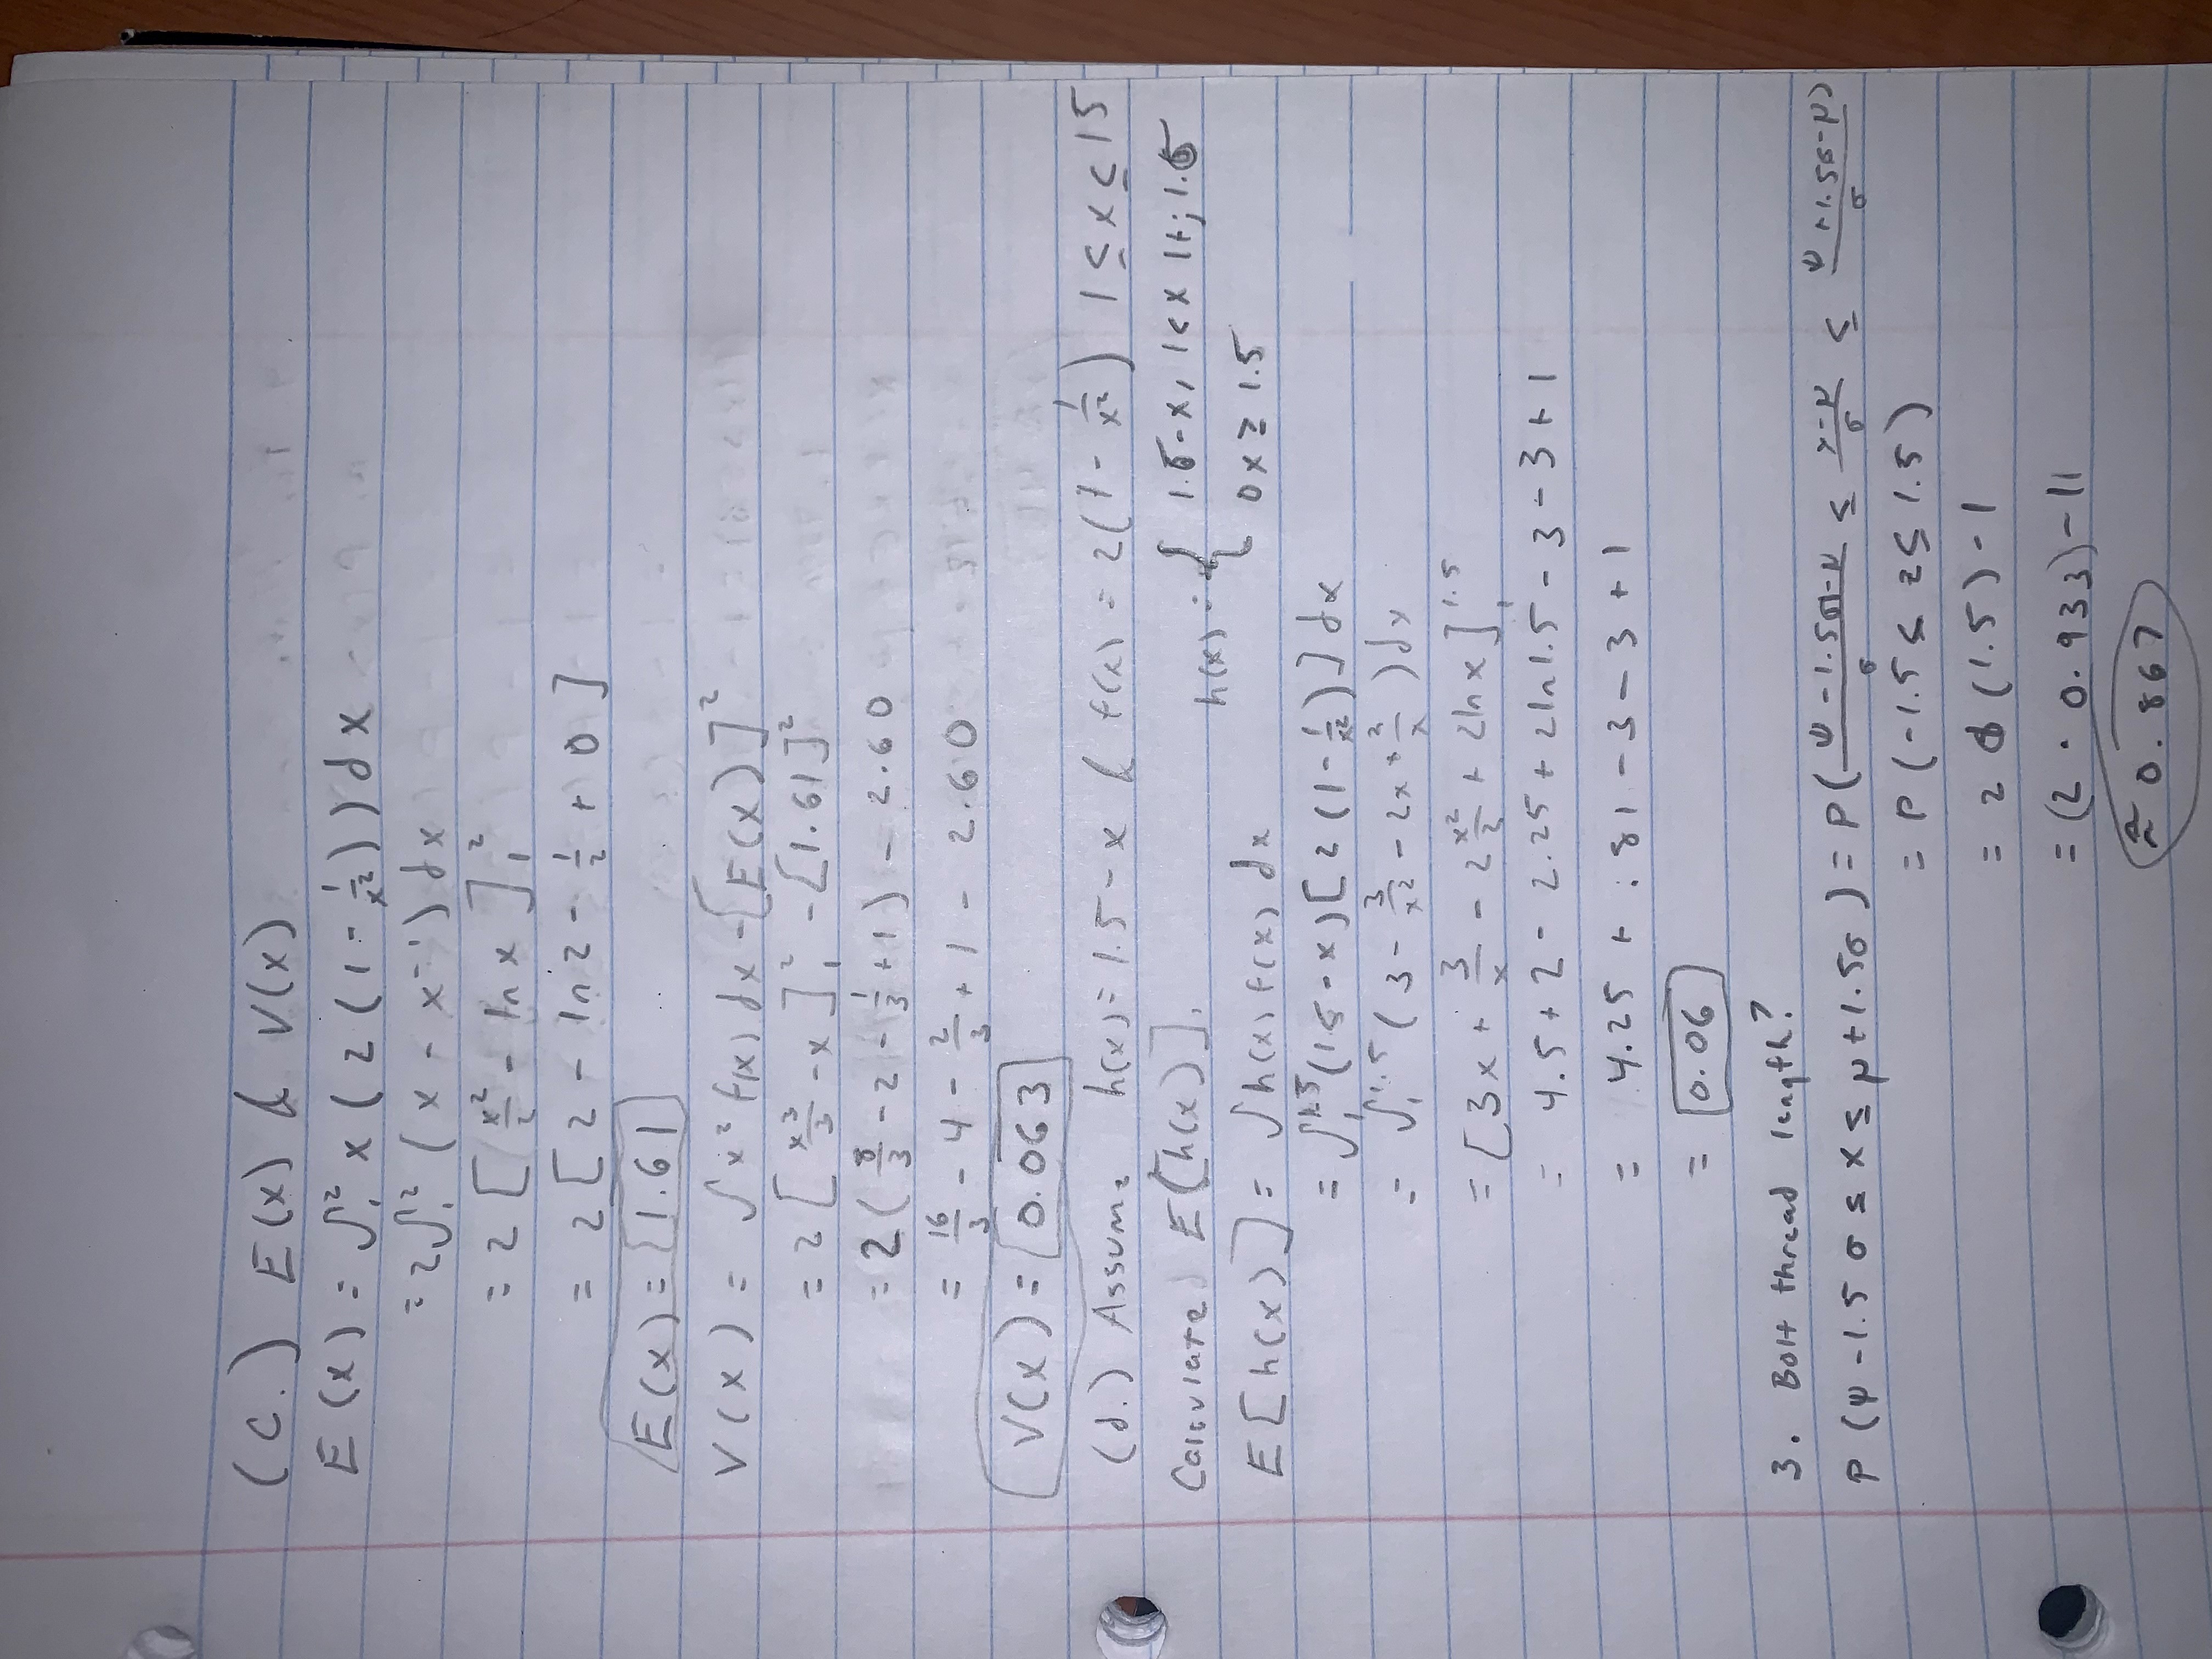 (C.) E(x) & V(x)
E(x) = ∫₁² x(2(1 - 1/x²))dx
= 2∫₁² (x - x⁻¹)dx
= 2[x²/2 - ln x]₁²
= 2[2 - ln2 - 1/2 + 0]
E(x) = 1.61
V(x) = ∫x² f(x) dx - [E(x)]²
= 2[x³/3 - x]₁² - [1.61]²
= 2(8/3 - 2 - 1/3 + 1) - 2.60
= 16/3 - 4 - 2/3 + 1 - 2.60
V(x) = 0.063
(d.) Assume h(x) = 1.5 - x & f(x) = 2(1 - 1/x²) 1 ≤ x ≤ 15
Calculate E[h(x)]. h(x) = { 1.5-x, 1<x 1+; 1.5
0 x ≥ 1.5
E[h(x)] = ∫h(x) f(x) dx
= ∫₁^1.5 (15 - x)[2(1 - 1/x²)]dx
= ∫₁^1.5 (3 - 3/x² - 2x + 2/x)dx
= [3x + 3/x - 2 x²/2 + 2ln x]₁^1.5
= 4.5 + 2 - 2.25 + 2ln1.5 - 3 - 3 + 1
= 4.25 + .81 - 3 - 3 + 1
= 0.06
3. Bolt thread length?
P(ψ - 1.5σ ≤ x ≤ μ + 1.5σ) = P((ψ - 1.5σ - μ)/σ ≤ (x - μ)/σ ≤ (ψ + 1.5σ - μ)/σ)
= P(-1.5 ≤ z ≤ 1.5)
= 2ϕ(1.5) - 1
= (2 · 0.933) - 11
≈ 0.867